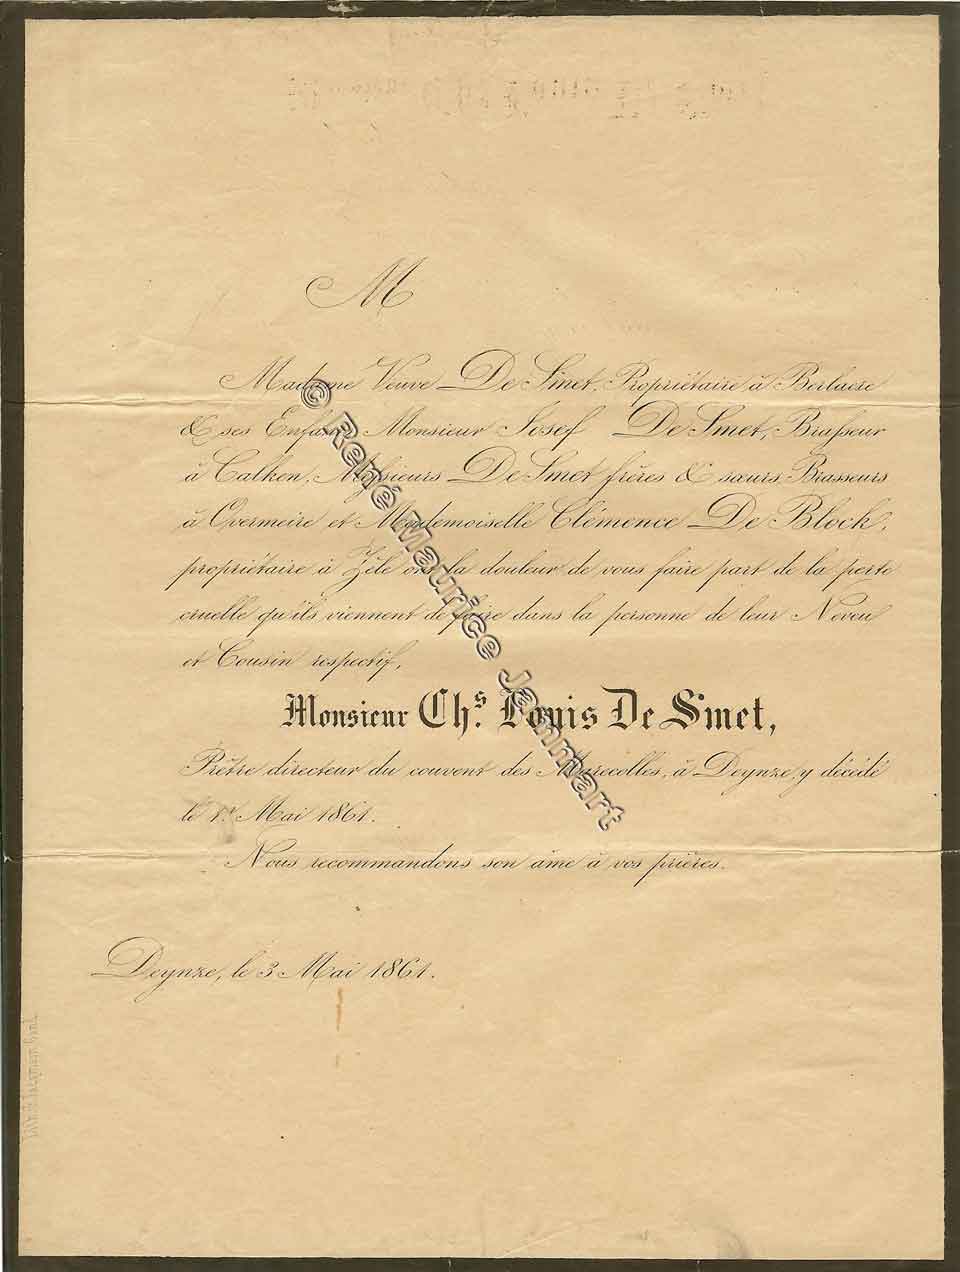 M
Madame Veuve De Smet, Propriétaire à Berlaere
& ses Enfants, Monsieur Josef De Smet, Brasseur
à Calken, Messieurs De Smet frères & sœurs, Brasseurs
à Overmeire et Mademoiselle Clémence De Block,
propriétaire à Zèle ont la douleur de vous faire part de la perte
cruelle qu'ils viennent de faire dans la personne de leur Neveu
et Cousin respectif,
Monsieur Chs. Louis De Smet,
Prêtre directeur du couvent des Maricolles, à Deynze, y décédé
le 1r Mai 1861.
Nous recommandons son âme à vos prières.
Deynze, le 3 Mai 1861.
© René Maurice Jammart